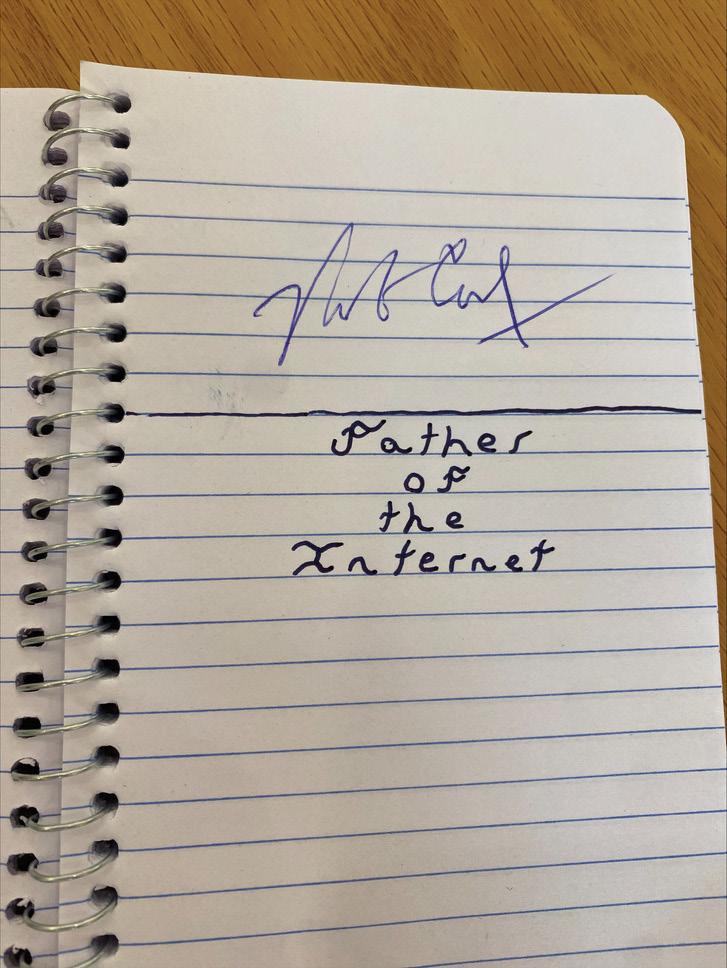 Father
of
the
Internet